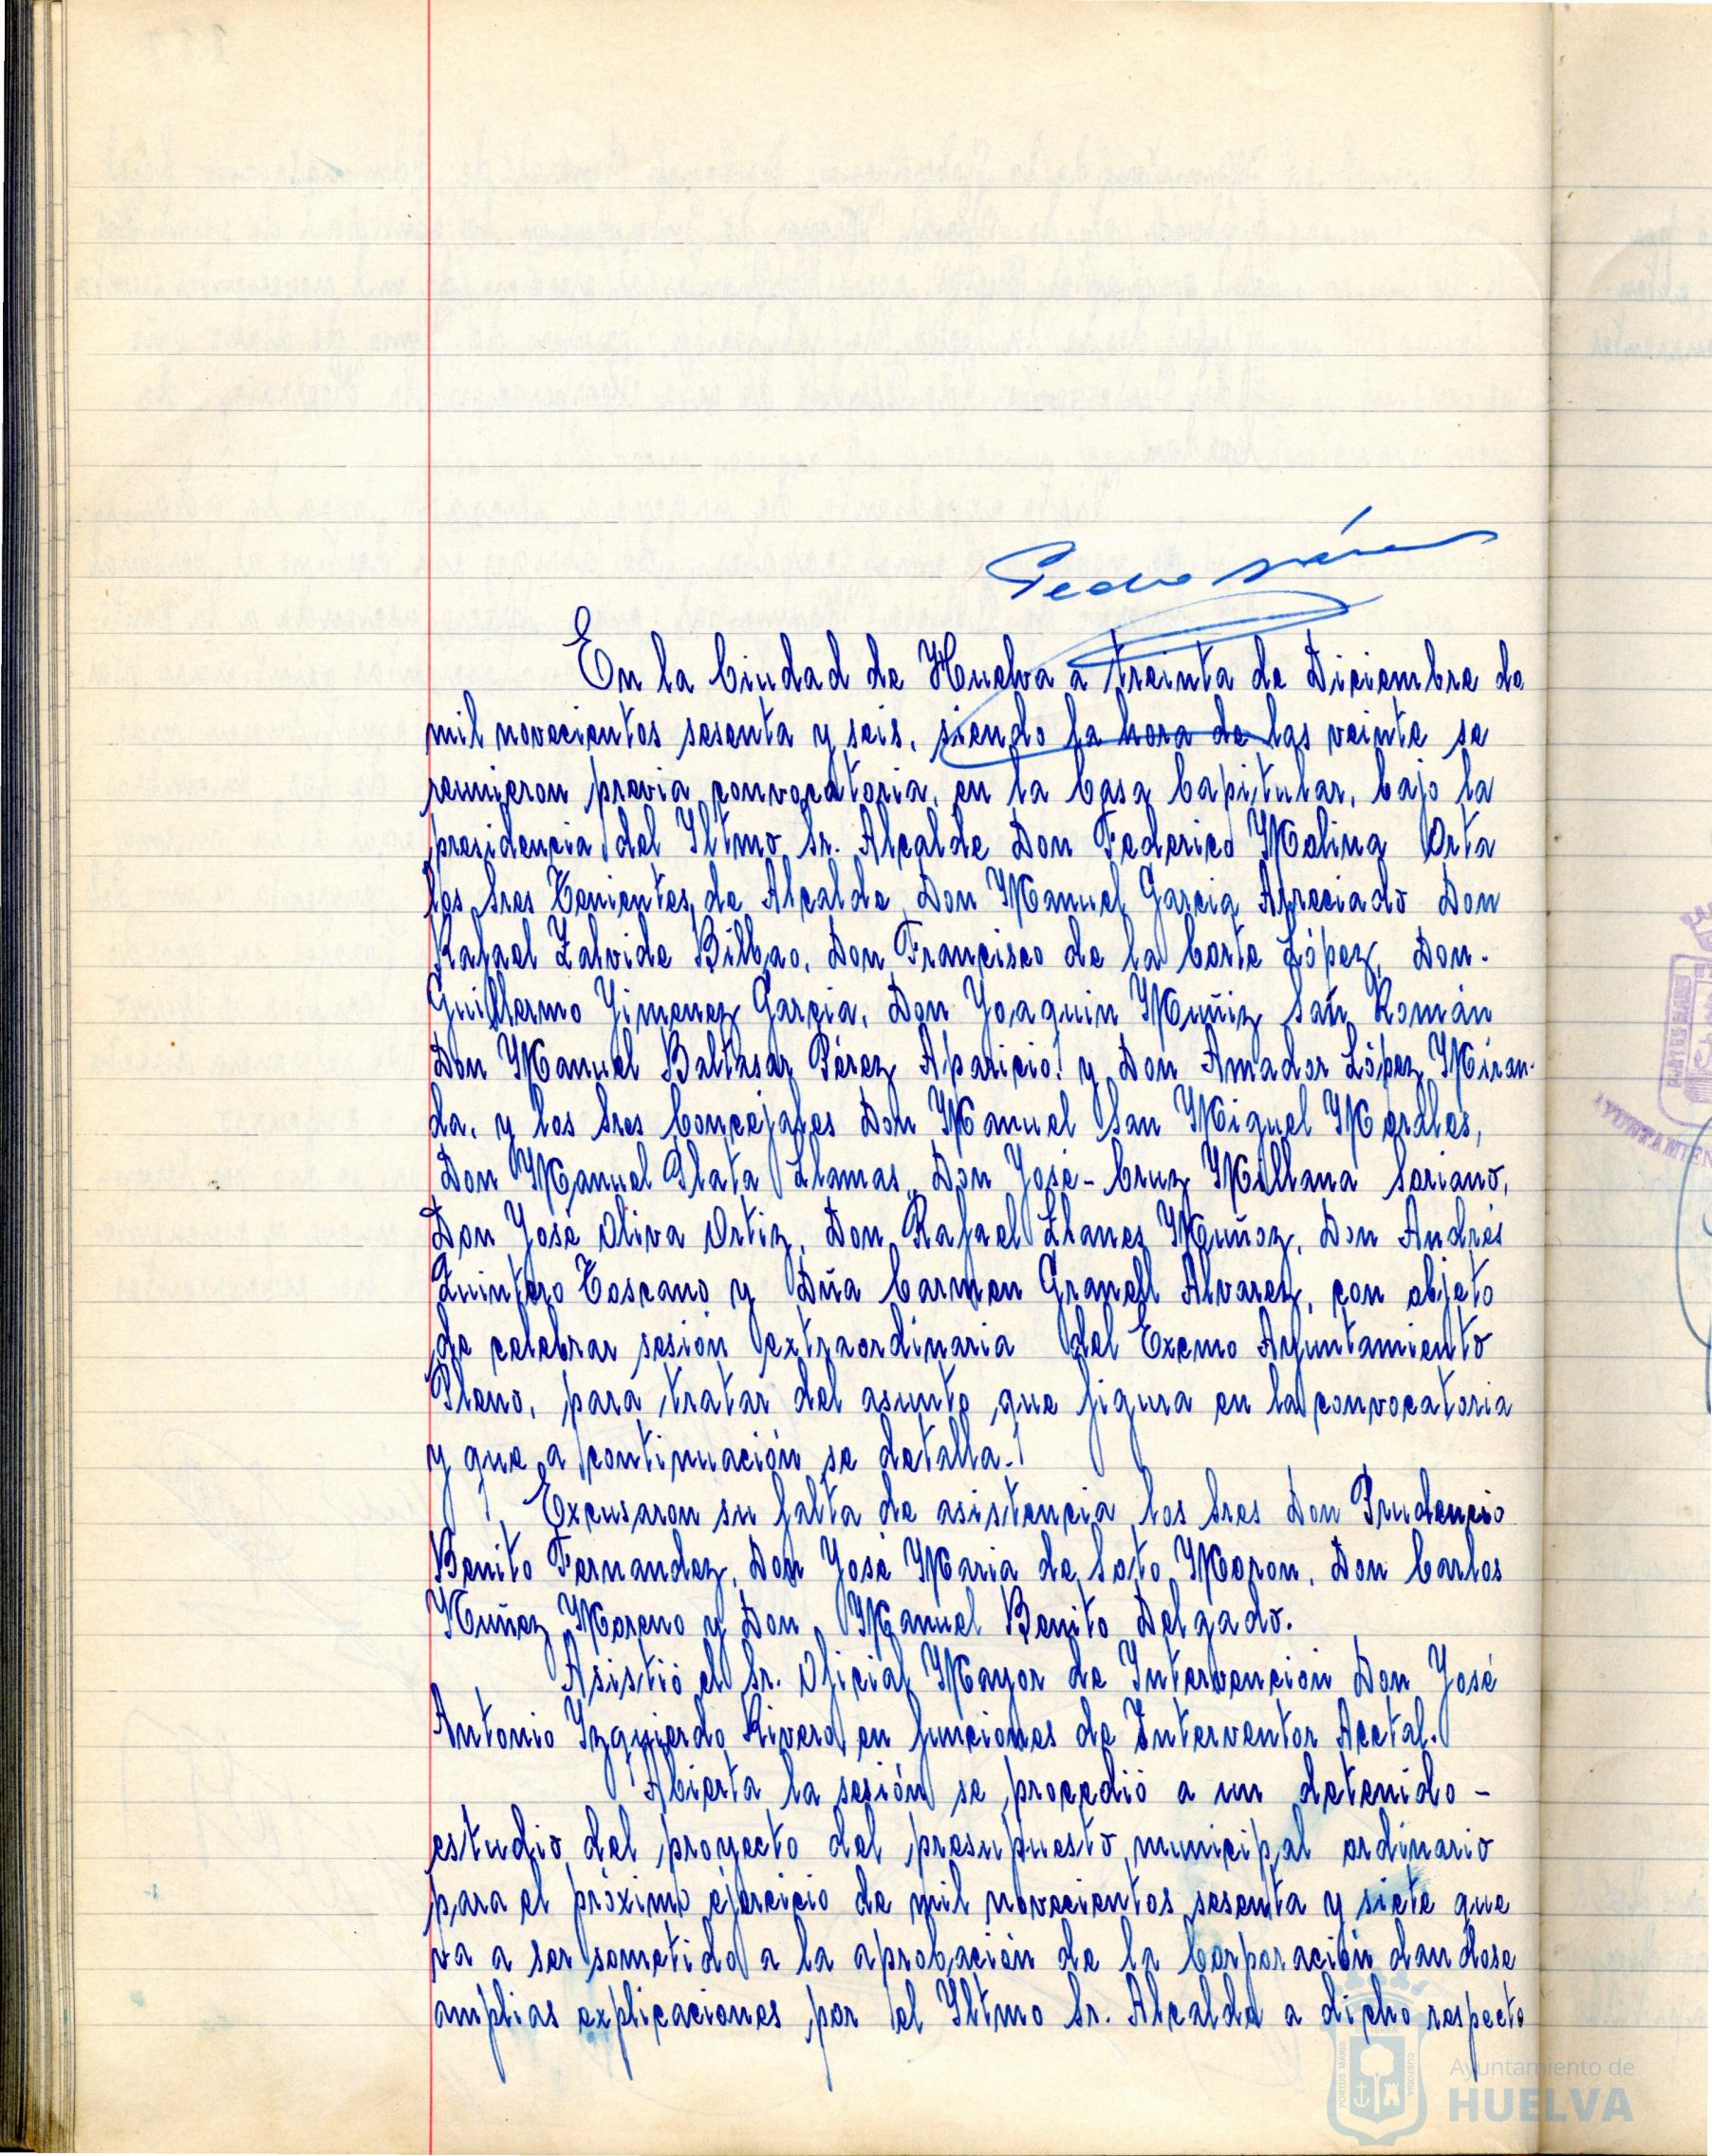 Pedro
En la Ciudad de Huelva a treinta de Diciembre de
mil novecientos sesenta y seis, siendo la hora de las veinte se
reunieron previa convocatoria, en la Casa Capitular, bajo la
presidencia del Iltmo Sr. Alcalde Don Federico Molina Orta
los Sres Tenientes de Alcalde, Don Manuel Garcia Apreciado Don
Rafael Zalvide Bilbao, Don Francisco de la Corte López, Don.
Guillermo Jimenez Garcia, Don Joaquin Muñiz San Román
Don Manuel Baltasar Pérez Aparicio y Don Amador López Miran-
da, y los Sres Concejales Don Manuel San Miguel Morales,
Don Manuel Plata Llamas, Don José-Cruz Millana Soriano,
Don José Oliva Ortiz, Don Rafael Llanes Muñoz, Don Andrés
Quintero Toscano y Dña Carmen Granell Alvarez, con objeto
de celebrar sesión extraordinaria del Excmo Ayuntamiento
Pleno, para tratar del asunto que figura en la convocatoria
y que a continuación se detalla.
Excusaron su falta de asistencia los Sres Don Prudencio
Benito Fernandez, Don José Maria de Soto Moron, Don Carlos
Muñoz Moreno y Don Manuel Benito Delgado.
Asistió el Sr. Oficial Mayor de Intervención Don José
Antonio Izquierdo Rivero en funciones de Interventor Acctal.
Abierta la sesión se procedió a un detenido -
estudio del proyecto del presupuesto municipal ordinario
para el próximo ejercicio de mil novecientos sesenta y siete que
va a ser sometido a la aprobación de la Corporación dandose
amplias explicaciones por el Iltmo Sr. Alcalde a dicho respecto
Ayuntamiento de
HUELVA